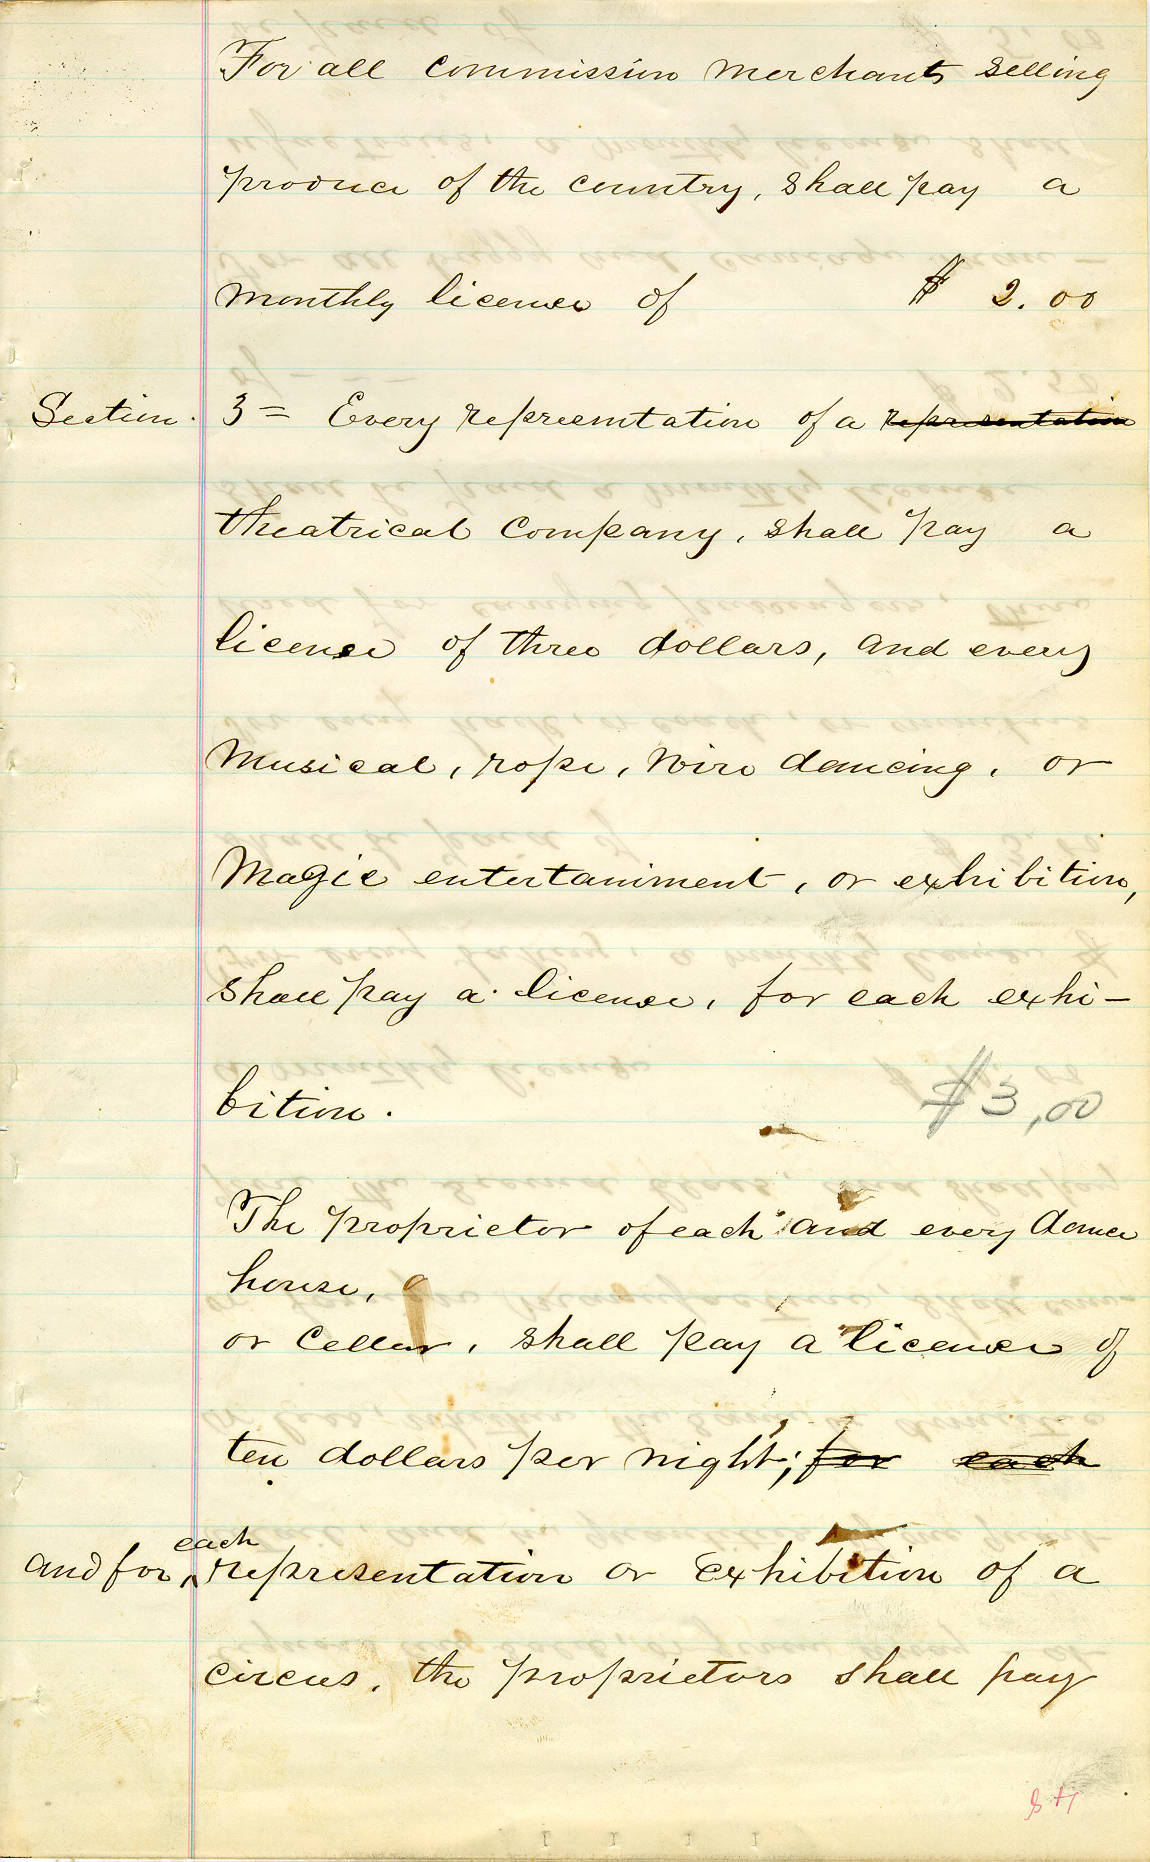 For all commission merchants selling
produce of the country, shall pay a
monthly license of $ 2.00
Section. 3= Every represntation of a representation
theatrical company, shall pay a
license of three dollars, and every
musical, rope, wire dancing, or
magic entertainment, or exhibition,
shall pay a license, for each exhi-
bition. $3,00
The proprietor of each and every dance
house,
or cellar, shall pay a license of
ten dollars per night; for each
each
and for representation or exhibition of a
circus, the proprietors shall pay